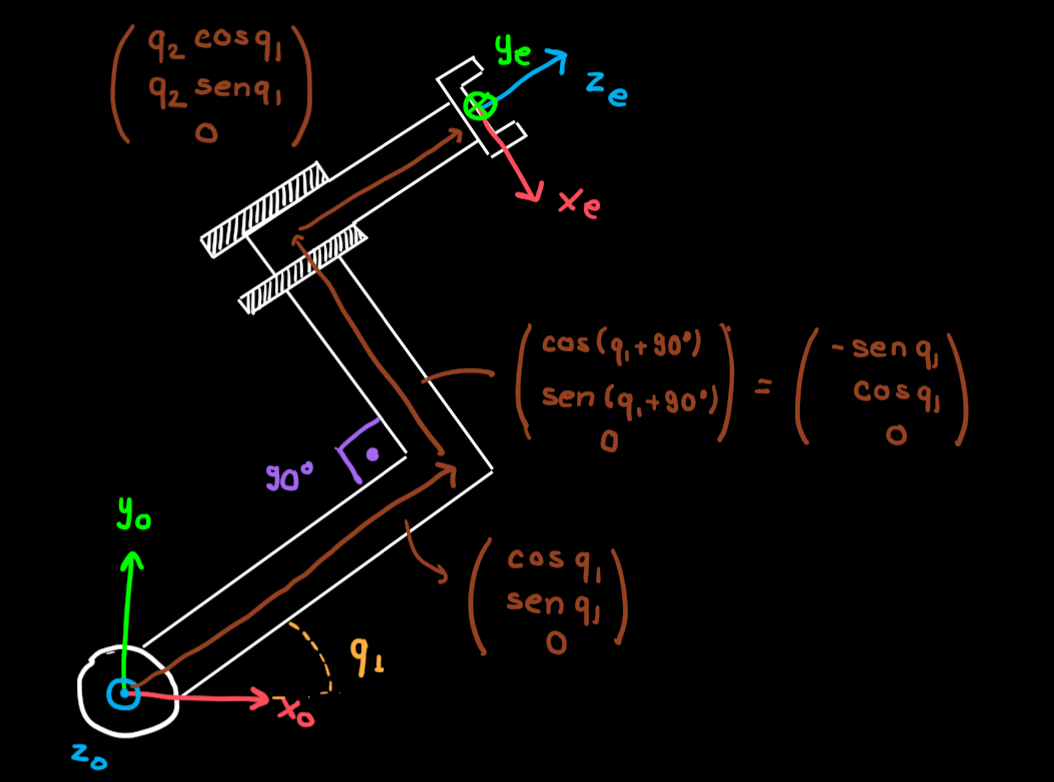 q₂ cosq₁
q₂ senq₁
0
yₑ
zₑ
xₑ
cos(q₁+90°)
sen(q₁+90°)
0
=
-senq₁
cosq₁
0
90°
y₀
cosq₁
senq₁
0
q₁
x₀
z₀